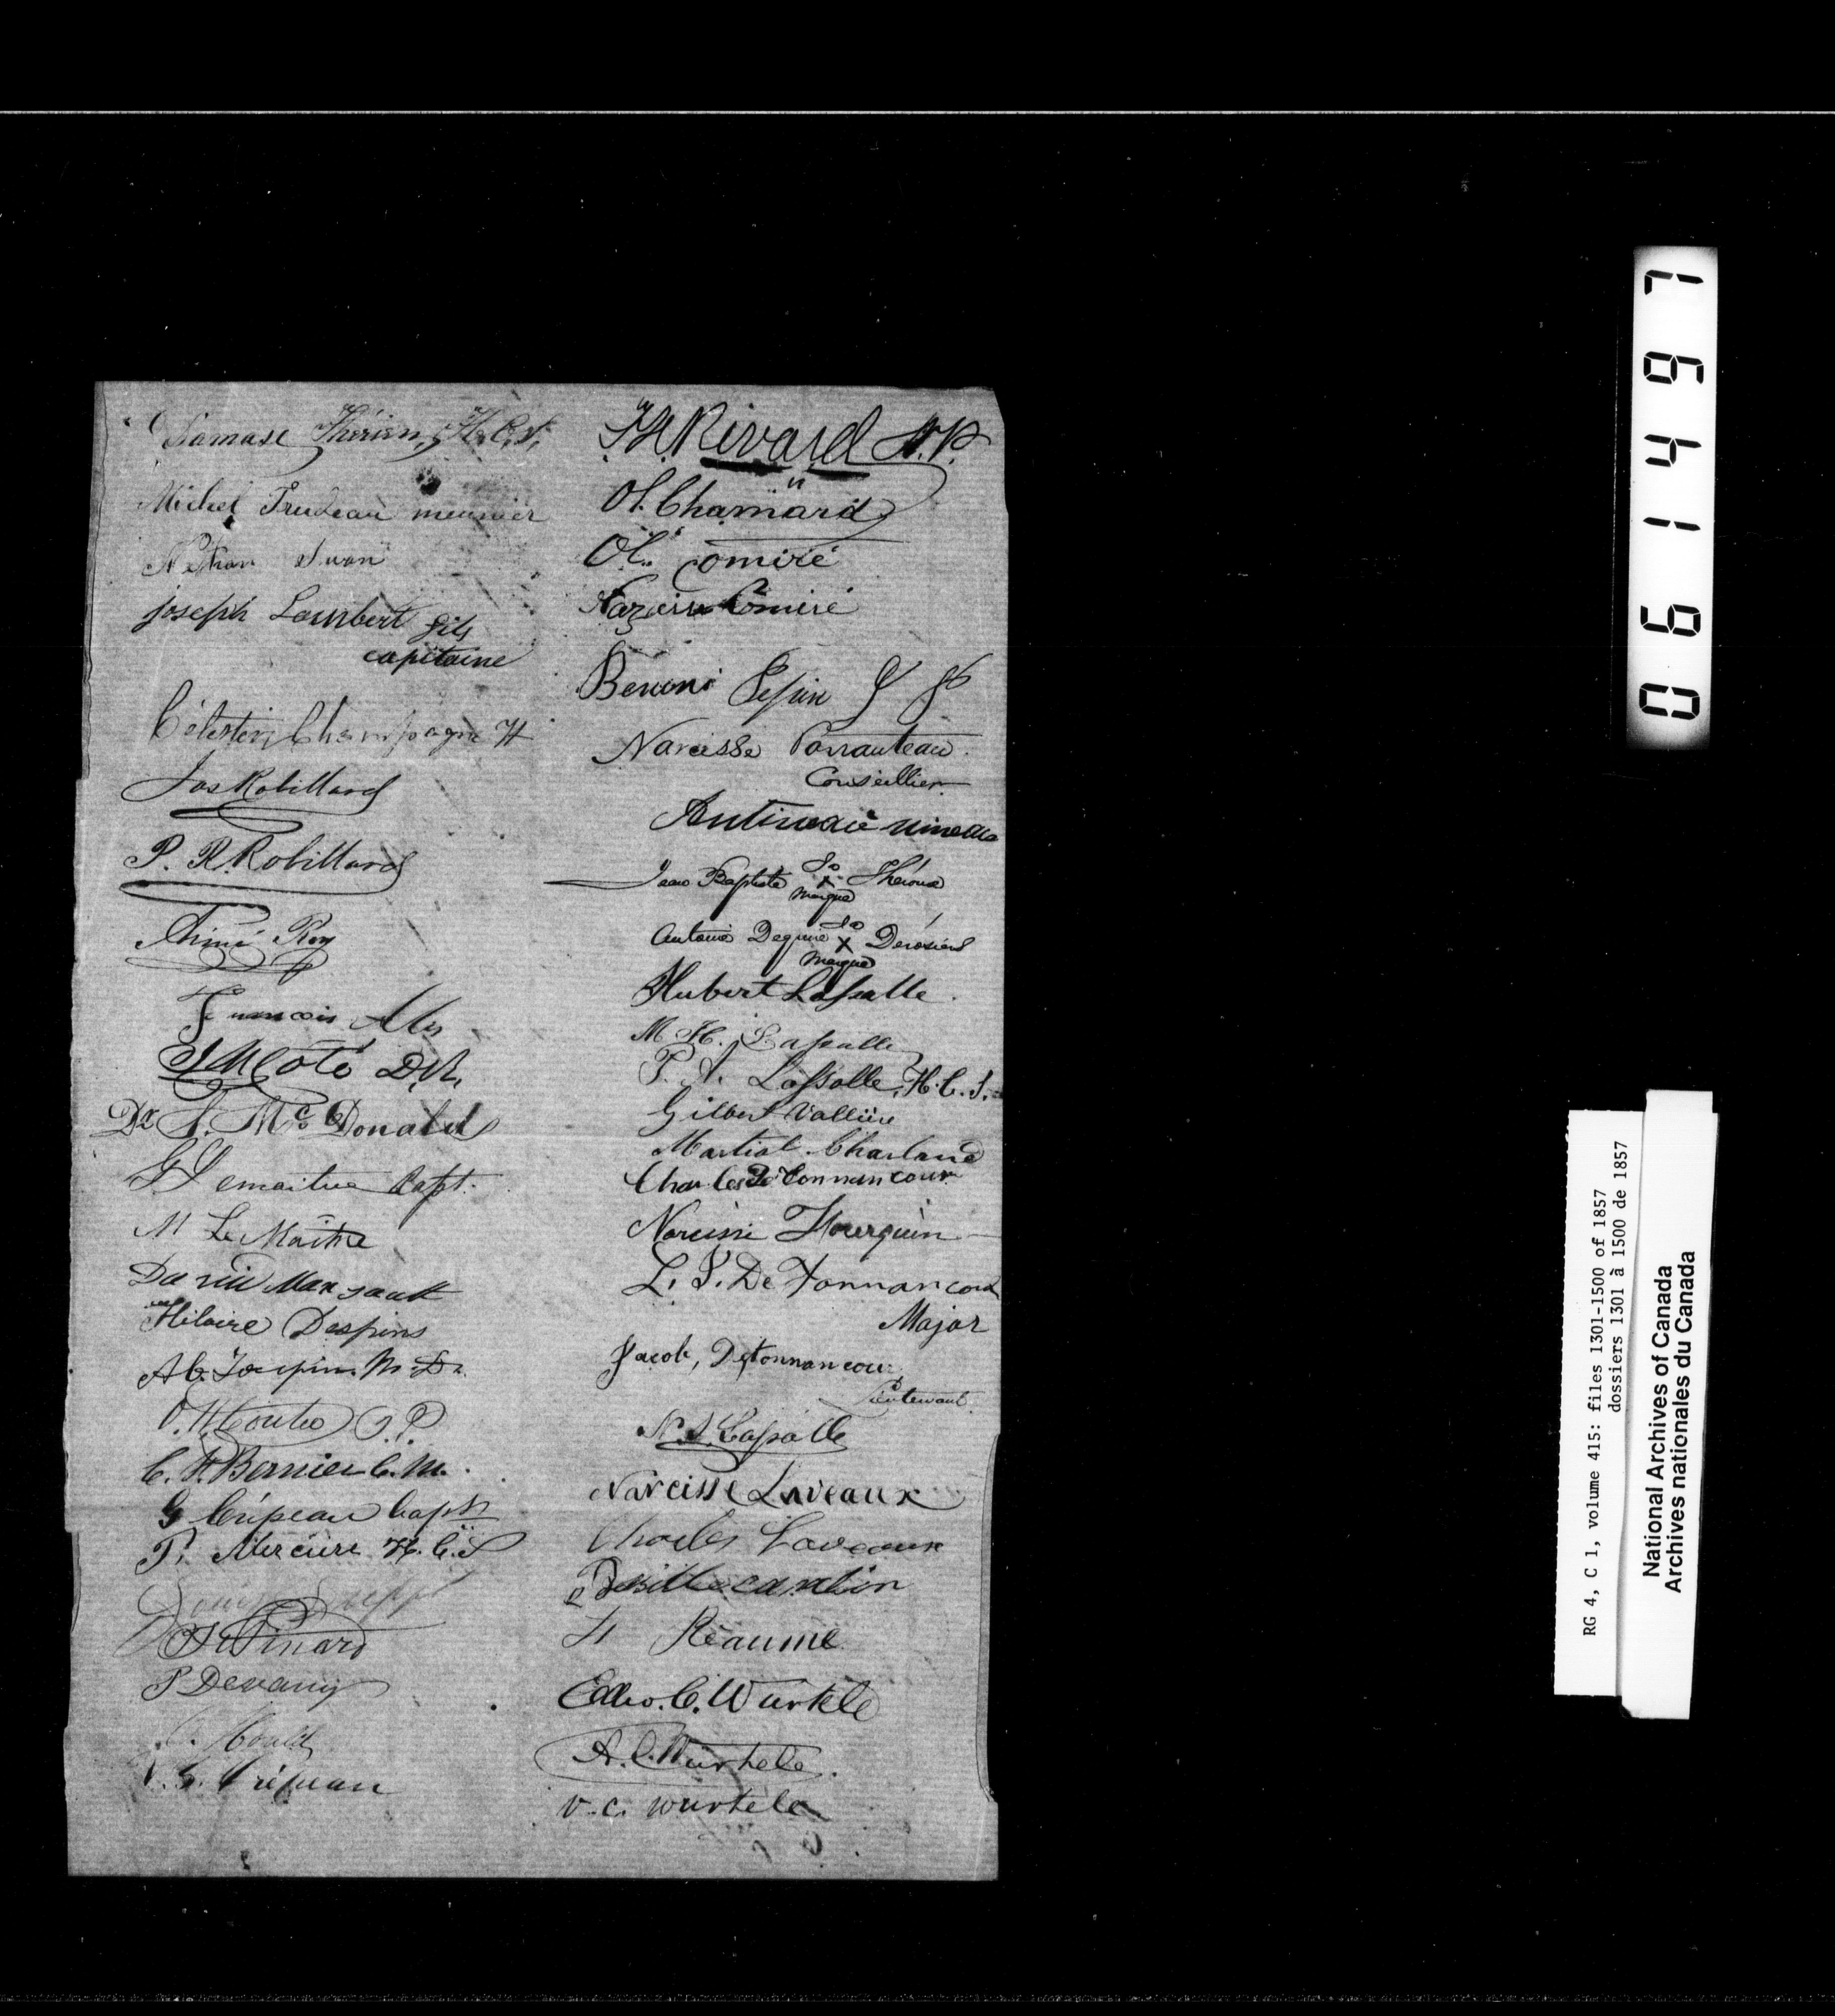 Damase Thérien, H.C.S.
Michel Trudeau meunier
Joseph Lambert fils
capitaine
Célestin Champagne H
Jos Robillard
P. R. Robillard
Aimé Roy
Francois
J M Coté D.M.
Dr A. McDonald
G Lemaitre Capt.
M Le Maître
Hilaire Despins
O. H. Coutu J.P.
C. F. Bernier C.M.
G Crépeau Capt
P. Mercure H.C.S
Pinard
P Devany
C. Mould
V. G. Crépeau
Rivard N.P.
Ol. Chamard
Ol. Comiré
Narcisse Comiré
Benoni Pepin
Narcisse Parrauteau
Conseillier
Jean Baptiste Sa X marque Théroux
Antoine Deguire Sa X marque Derosiers
Hubert Lassalle.
M. H. Lassalle
P. A. Lassalle, H.C.S.
Gilbert Vallière
Martial Charland
Charles De Tonnancour
Narcisse Hourquin
L. J. De Tonnancour
Major
Jacob, Detonnancour
Lieutenant
N. A. Lassalle
Narcisse Laveaux
Charles Laveaux
H Reaume
Edw. C. Wurtele
A. C. Wurtele.
V. C. Wurtele
061497
RG 4, C 1, volume 415: files 1301-1500 of 1857
dossiers 1301 à 1500 de 1857
National Archives of Canada
Archives nationales du Canada